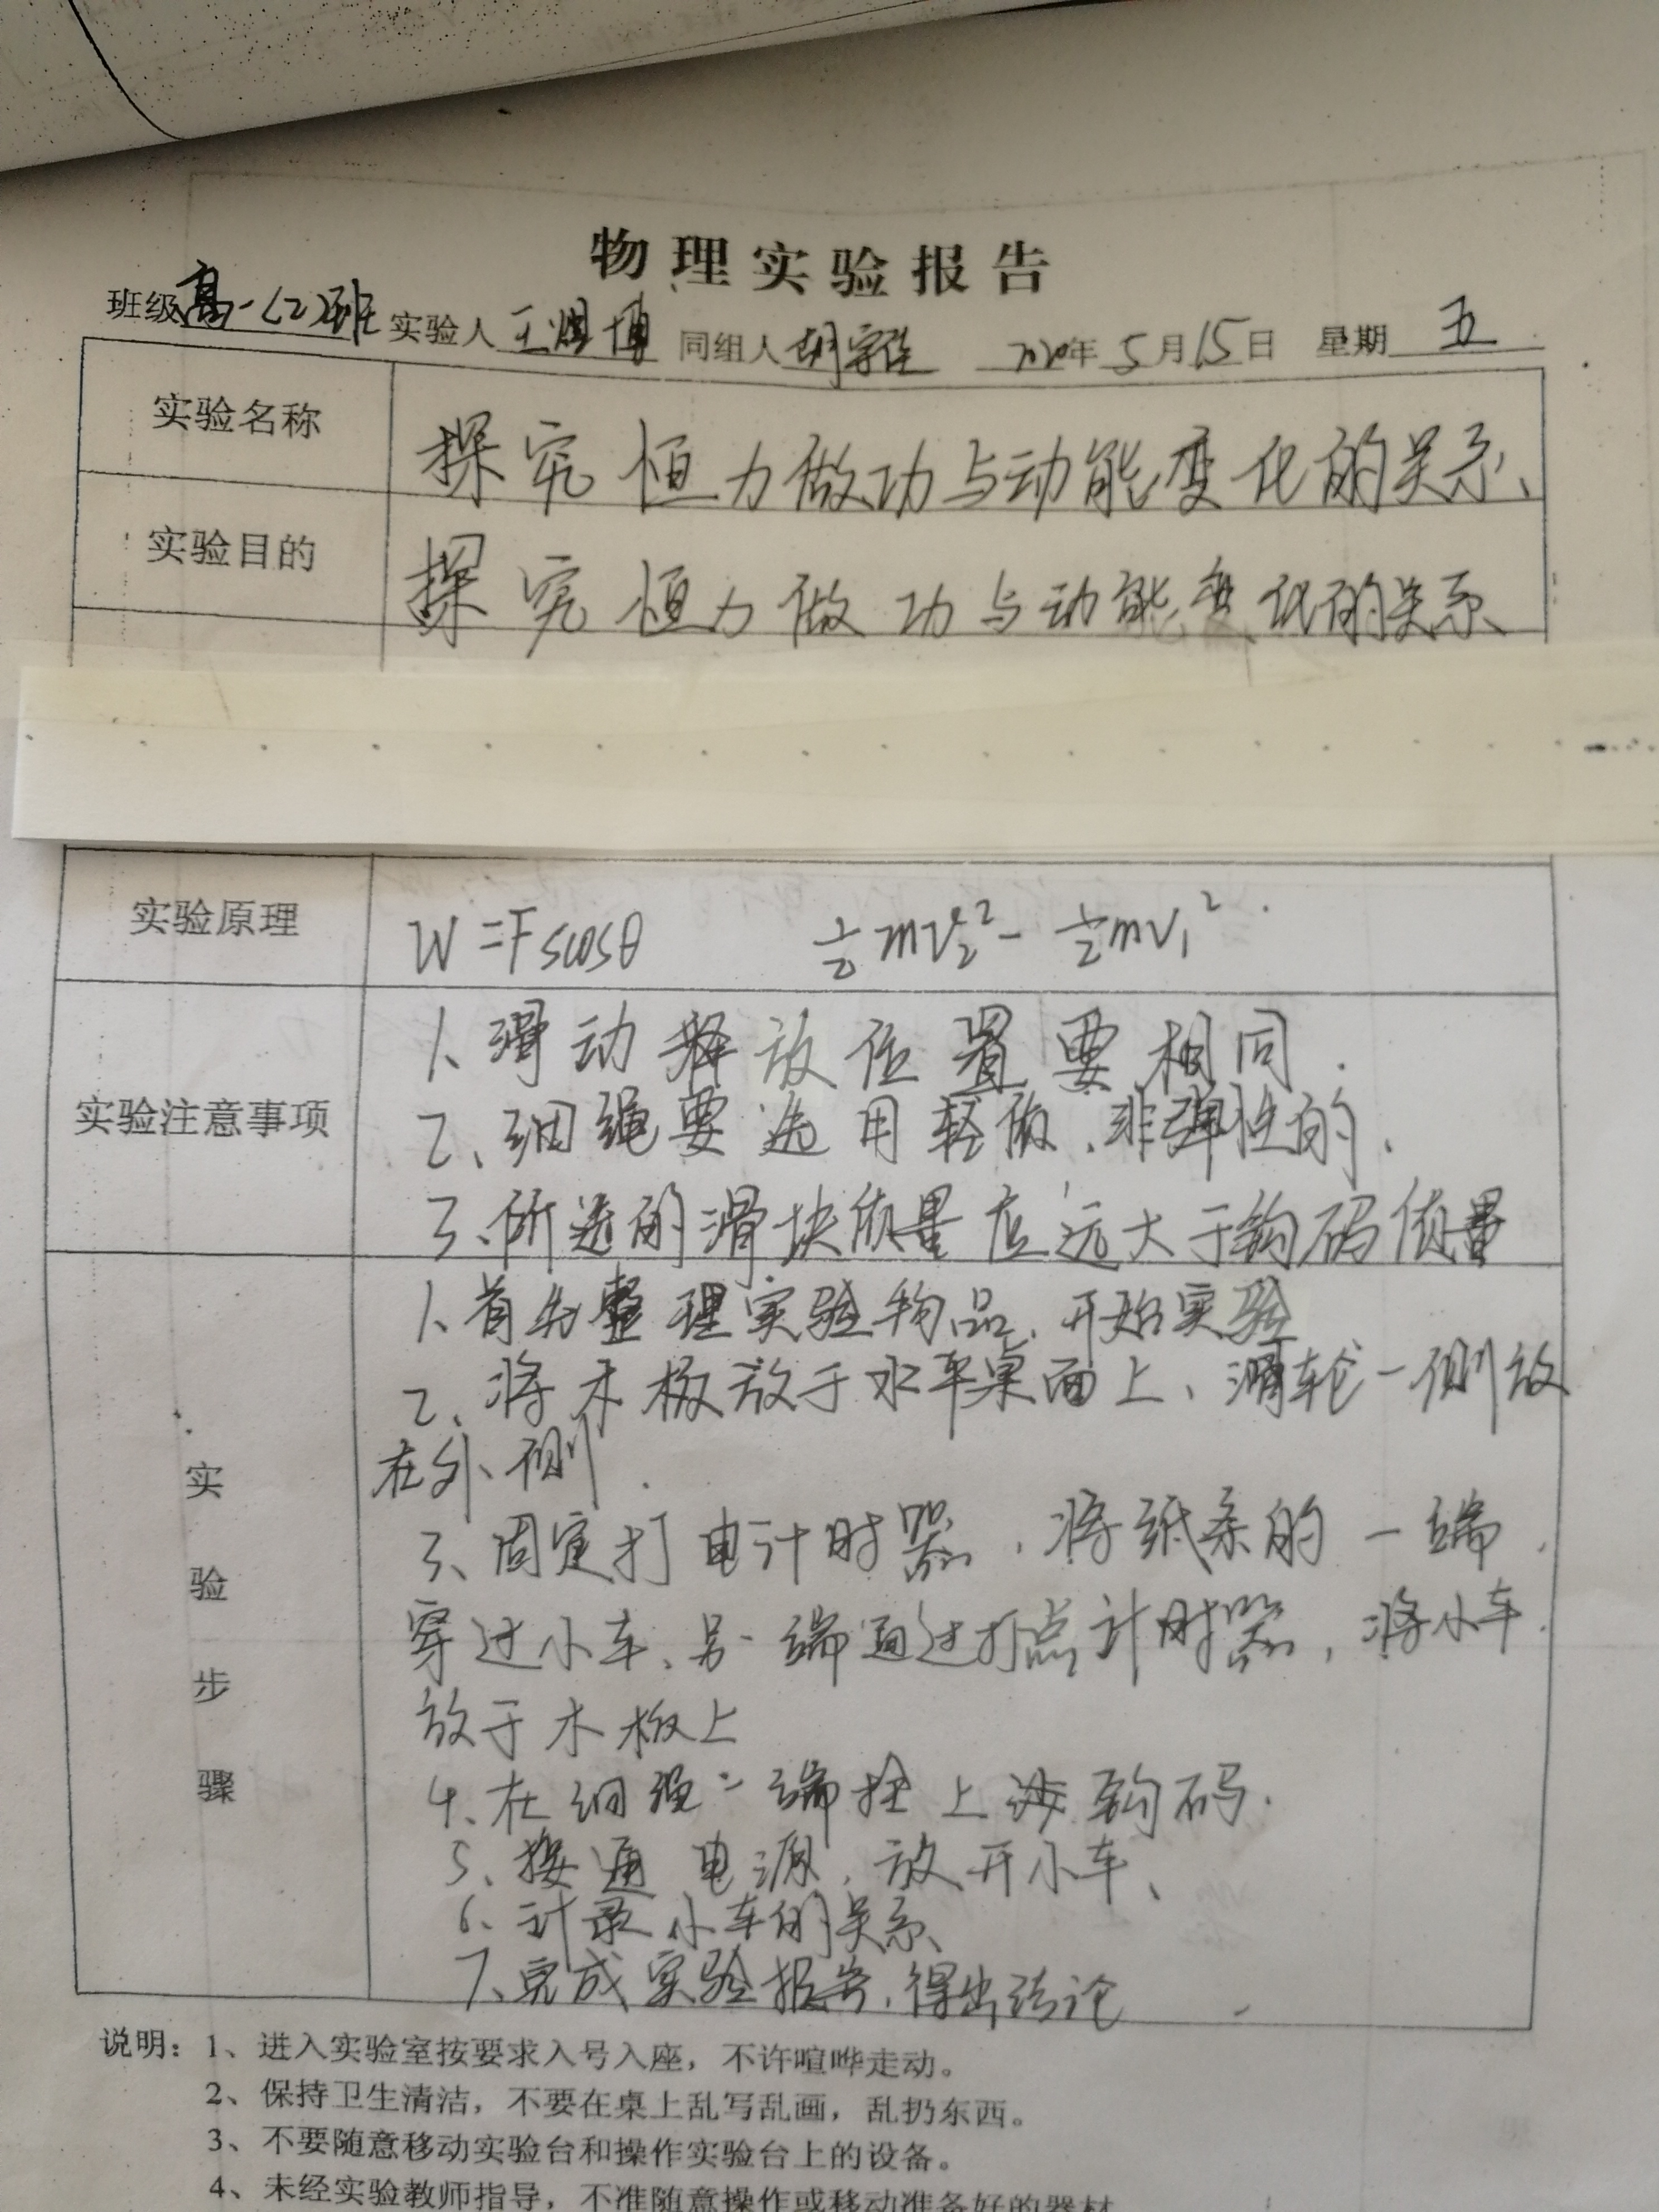 物理实验报告
班级高一(2)班 实验人王煜博 同组人胡宗佳 2020年5月15日 星期五
实验名称 探究恒力做功与动能变化的关系、
实验目的 探究恒力做功与动能变化的关系
实验原理 W=Fscosθ ½mv₂²-½mv₁²
实验注意事项
1、滑动释放位置要相同.
2、细绳要选用轻质、非弹性的.
3、所选的滑块质量应远大于钩码质量
实验步骤
1、首先整理实验物品、开始实验
2、将木板放于水平桌面上、滑轮一侧放
在外侧.
3、固定打电计时器,将纸条的一端,
穿过小车、另一端通过打点计时器,将小车
放于木板上
4、在细绳一端拴上钩码.
5、接通电源,放开小车、
6、计录小车的关系
7、完成实验报告,得出结论
说明:1、进入实验室按要求入号入座,不许喧哗走动。
2、保持卫生清洁,不要在桌上乱写乱画,乱扔东西。
3、不要随意移动实验台和操作实验台上的设备。
4、未经实验教师指导,不准随意操作或移动准备好的器材